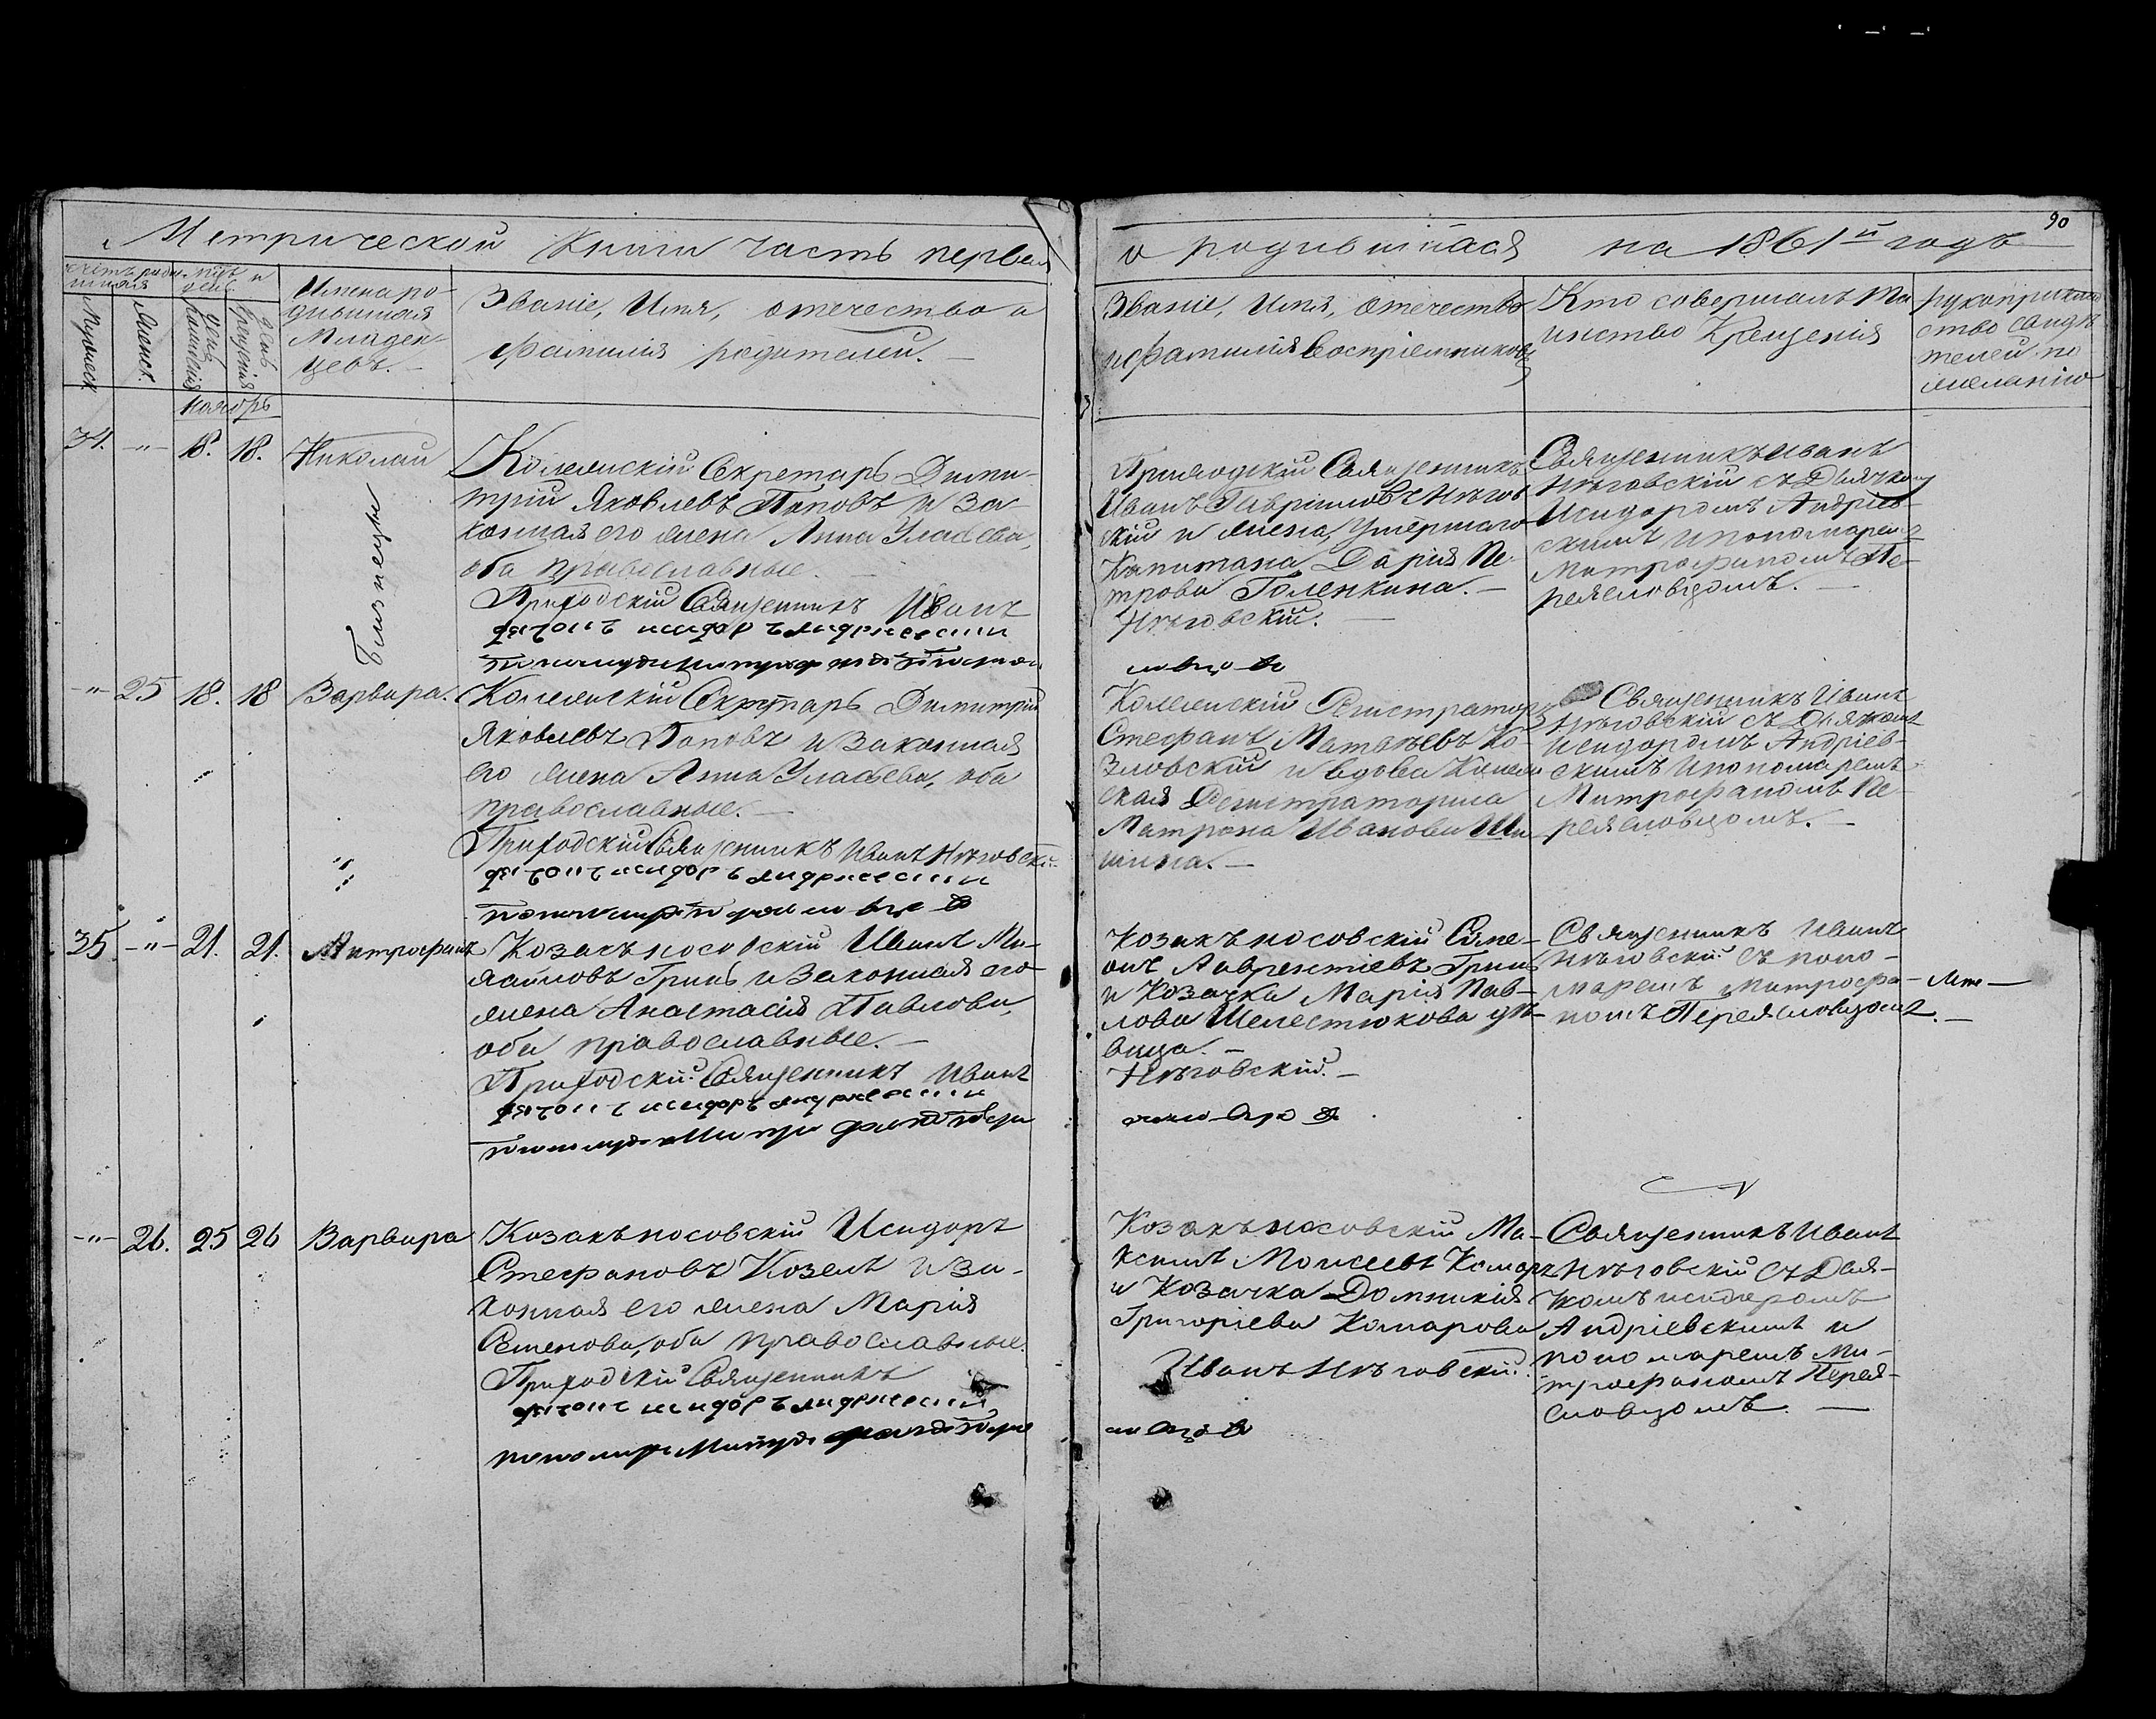 Метрической книги часть первая
о родившихся на 1861й годъ
90
Мужеск.
Женск.
день рожденія
день крещенія
Имена ро-
дившихся
Младен-
цевъ. -
Званіе, Имя, отечество и
фамилія родителей. -
Званіе, Имя, отечество
и фамилія воспріемниковъ
Кто совершалъ Та-
инство Крещенія
рукоприклад
ство свидѣ
телей по
желанію
ноябрь
34. -"- 18. 18. Николай
Близнецы
Колежскій Секретарь Дими-
трій Яковлевъ Поповъ и за-
конная его жена Анна
оба православные. -
Приходскій Священникъ Иванъ
дячокъ исидоръ андриевски
Приходскій Священникъ
Иванъ Гавріиловъ Нѣгов
скій и жена умершаго
Капитана Дарія Пе-
трова Голенкина. -
Нѣговскій. -
ловцовъ
Священникъ Иванъ
Нѣговскій съ Дьячкомъ
Исидоромъ Андріев-
скимъ и пономаремъ
Митрофаномъ Пе-
реяславцомъ. -
-"- 25 18. 18 Варвара.
Колежскій Секретарь Димитрій
Яковлевъ Поповъ и законная
его жена Анна оба
православные. -
Приходскій Священникъ Иванъ Нѣговскій
дячокъ исидоръ андриевски
Колежскій Регистраторъ
Стефанъ Матвѣевъ Ко-
зловскій и вдова Колеж
ская Регистраторша
Матрона Иванова Ши-
шина. -
Священникъ Иванъ
Нѣговскій съ Дьячкомъ
Исидоромъ Андріев-
скимъ и пономаремъ
Митрофаномъ Пе-
реяславцомъ. -
35 -"- 21. 21. Митрофанъ
Козакъ носовскій Иванъ Ми-
хайловъ Гринь и законная его
жена Анастасія Павлова,
оба православные. -
Приходскій Священникъ Иванъ
дячокъ исидоръ андриевски
Козакъ носовскій Симе-
онъ Лаврентіевъ Гринь
и Козачка Марія Пав-
лова Шелестюкова дѣ-
вица. -
Нѣговскій. -
Священникъ Иванъ
Нѣговскій съ поно-
маремъ Митрофа-
номъ Переяславцомъ. -
-"- 26. 25 26 Варвара
Козакъ носовскій Исидоръ
Стефановъ Козелъ и за-
конная его жена Марія
Семенова, оба православные.
Приходскій Священникъ
дячокъ исидоръ андриевски
Козакъ носовскій Ма-
ксимъ Моисеевъ Комаръ
и Козачка Домникія
Григоріева Комарова
Иванъ Нѣговскій.
Священникъ Иванъ
Нѣговскій съ Дья-
комъ исидоромъ
Андріевскимъ и
пономаремъ Ми-
трофаномъ Перея-
словцомъ. -